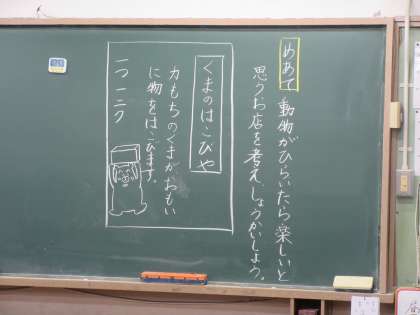 めあて 動物がひらいたら楽しいと
思うお店を考え、しょうかいしよう。
くまのはこびや
力もちのくまがおもい
に物をはこびます。